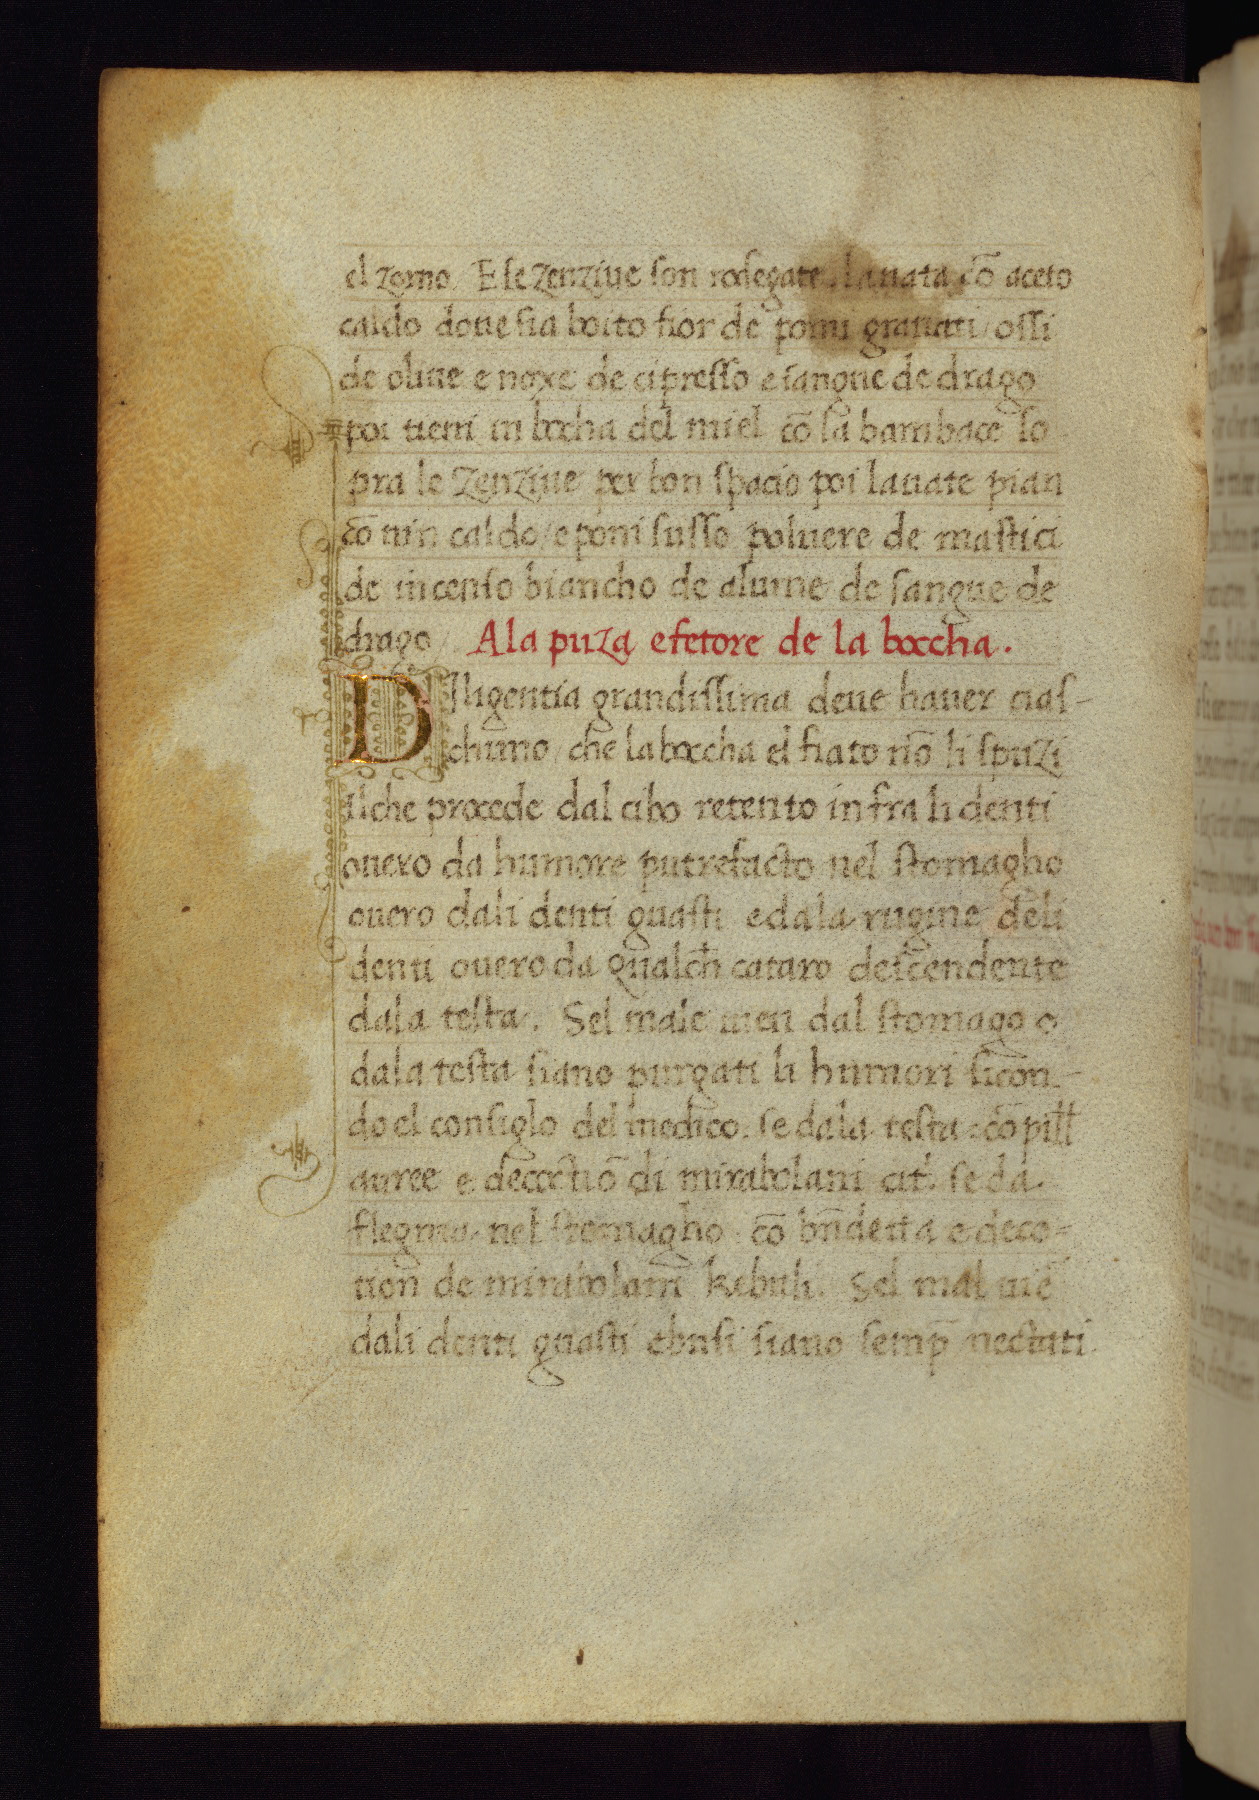 el zorno. E se zenzive son rodegate lavata cō aceto
caldo dove sia boito fior de pomi granati / ossi
de olive e noxe de cipresso e sangue de drago
poi tieni in bocha del miel cō la bambace so
pra le zenzive per bon spacio poi lavate pian
cō vin caldo / e poni susso polvere de mastici
de incenso biancho de alume de sangue de
drago / A la puza e fetore de la boccha.
Diligentia grandissima deve haver cias-
chuno / che la boccha el fiato nō li spuzi
Ilche procede dal cibo retento in fra li denti
overo da humore putrefacto nel stomagho
overo dali denti guasti e dala rugine deli
denti overo da qualch cataro descendente
dala testa. Sel male vien dal stomago o
dala testa siano purgati li humori sicon-
do el consiglo del medico. se dala testa: cō pill
auree e decoctiō di mirabolani cit. se da
flegma nel stomagho: cō bn̄detta e deco-
tion de mirabolani kebuli. Sel mal viē
dali denti guasti e busi siano semp̄ nectati